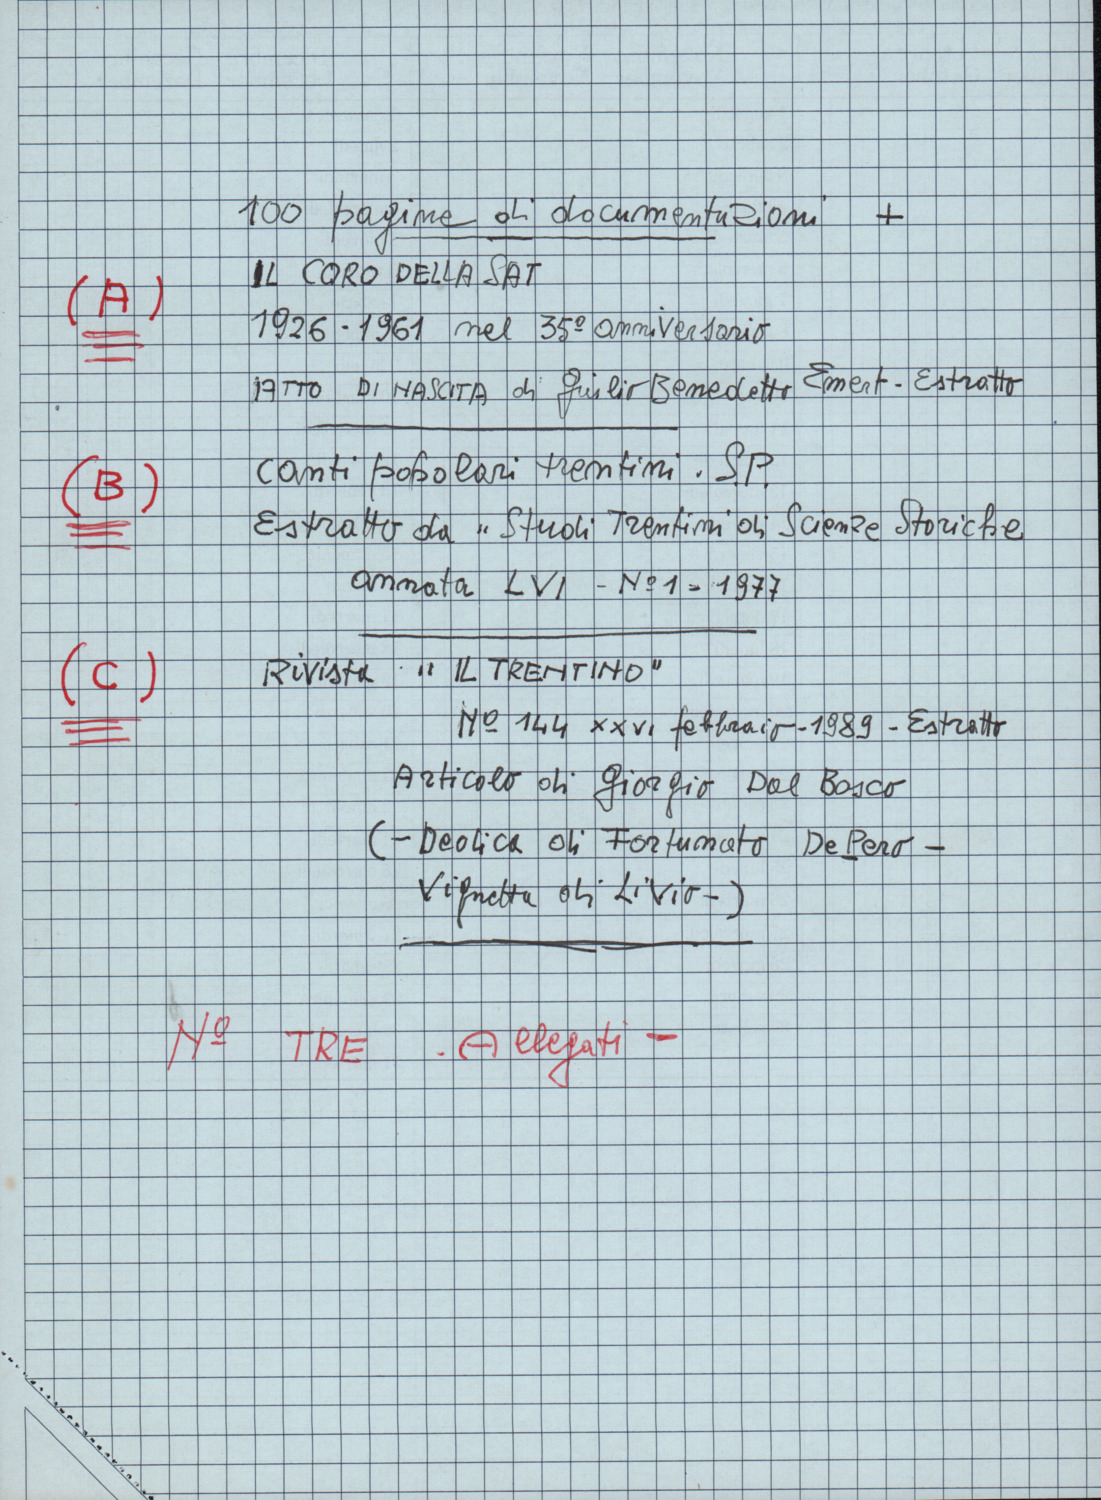 100 pagine di documentazioni +
(A) IL CORO DELLA SAT
1926 - 1961 nel 35º anniversario
ATTO DI NASCITA di Giulio Benedetto Emert - Estratto
(B) Canti popolari trentini. S.P.
Estratto da " Studi Trentini di Scienze Storiche
annata LVI - Nº 1 - 1977
(C) Rivista " IL TRENTINO "
Nº 144 XXVI febbraio - 1989 - Estratto
Articolo di Giorgio Dal Bosco
(- Dedica di Fortunato DePero -
Vignetta di Livio -)
Nº TRE . Allegati -